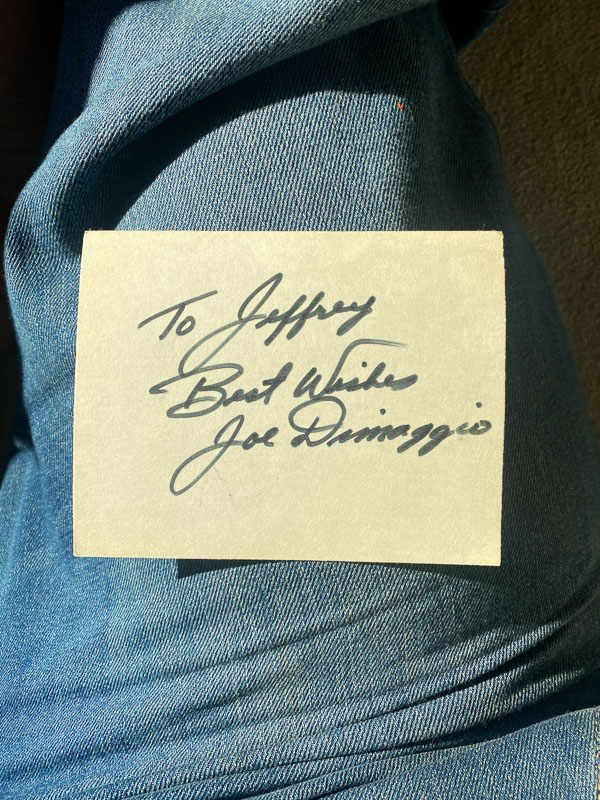 To Jeffrey
Best Wishes
Joe Dimaggio